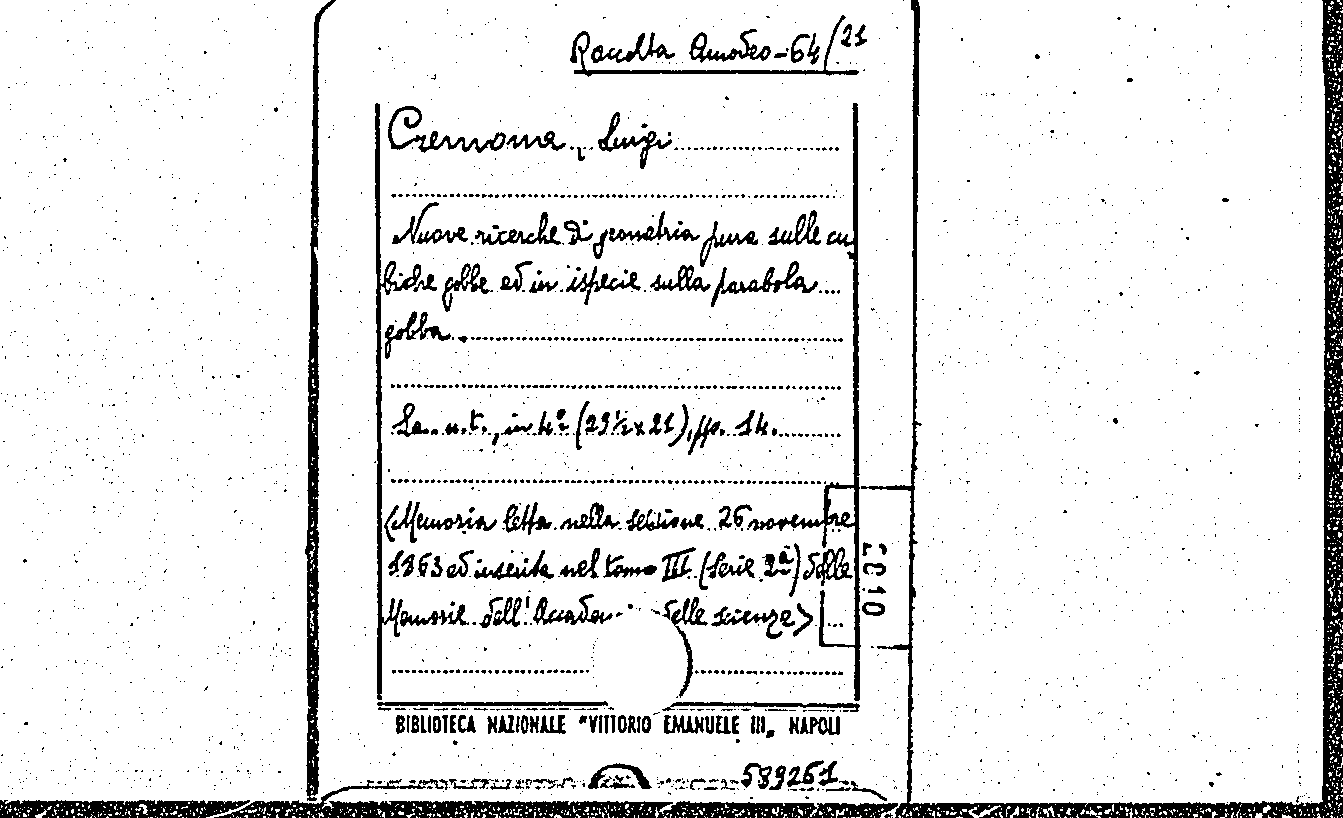 Raccolta Amodeo-64/21
Cremona, Luigi
Nuove ricerche di geometria pura sulle cu
biche gobbe ed in ispecie sulla parabola
gobba.
s.n.t., in 4º (29½x21), pp. 14.
(Memoria letta nella sessione 26 novembre
1863 ed inserita nel tomo III (Serie 2ª) delle
Memorie dell'Accade delle scienze)
BIBLIOTECA NAZIONALE "VITTORIO EMANUELE III„ NAPOLI
589261